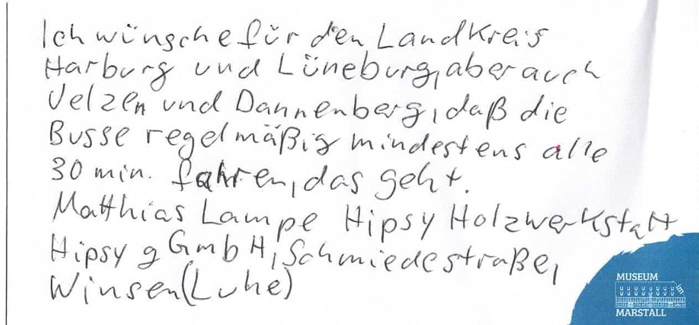 Ich wünsche für den Landkreis
Harburg und Lüneburg, aber auch
Uelzen und Dannenberg, daß die
Busse regelmäßig mindestens alle
30 min. fahren, das geht.
Matthias Lampe Hipsy Holzwerkstatt
Hipsy gGmbH, Schmiedestraße,
Winsen (Luhe)
MUSEUM
MARSTALL